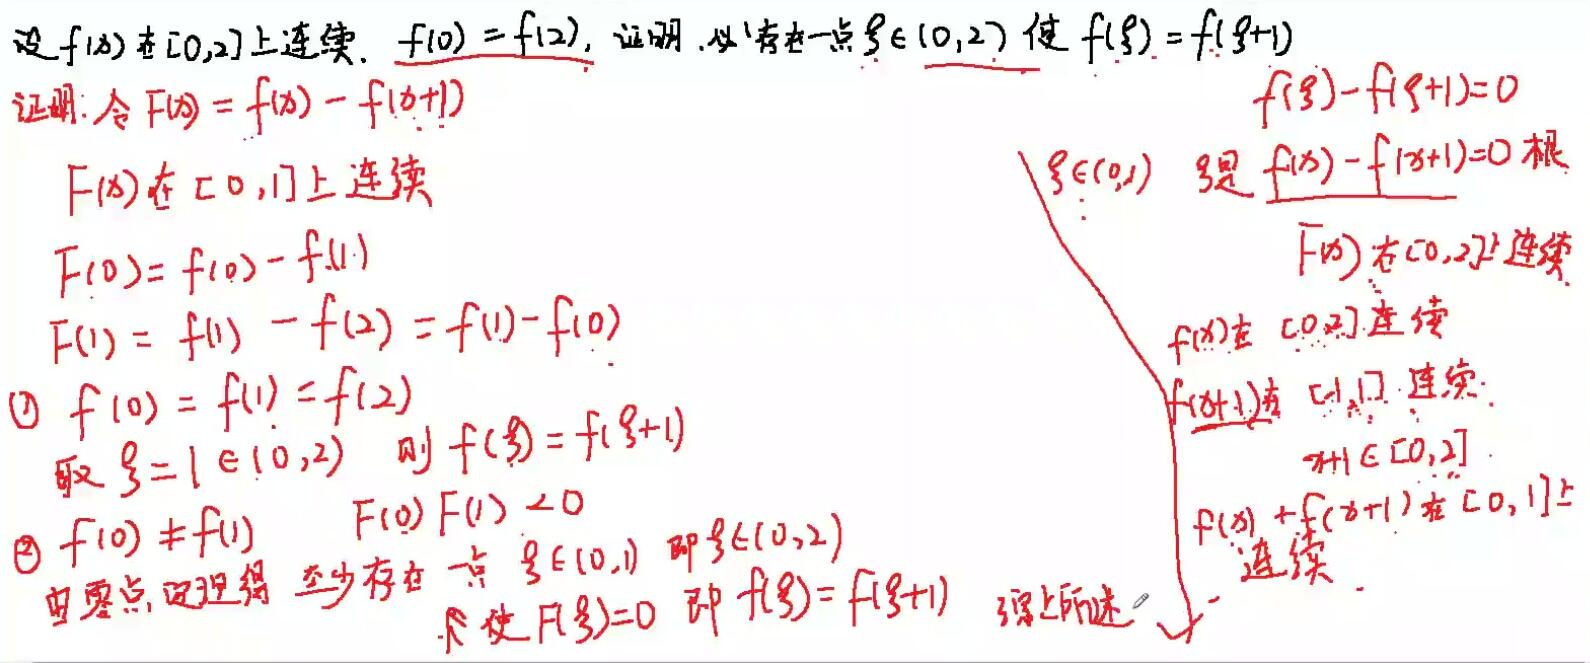 设f(x)在[0,2]上连续. f(0)=f(2), 证明.必存在一点ξ∈(0,2)使 f(ξ)=f(ξ+1)
证明:令F(x)=f(x)-f(x+1)
F(x)在[0,1]上连续
F(0)=f(0)-f(1)
F(1)=f(1)-f(2)=f(1)-f(0)
① f(0)=f(1)=f(2)
取ξ=1∈(0,2) 则f(ξ)=f(ξ+1)
② f(0)≠f(1) F(0)F(1)<0
由零点定理得 至少存在一点 ξ∈(0,1) 即ξ∈(0,2)
使F(ξ)=0 即f(ξ)=f(ξ+1) 综上所述
f(ξ)-f(ξ+1)=0
ξ∈(0,1) ξ是 f(x)-f(x+1)=0根
F(x)在[0,2]上连续
f(x)在[0,2].连续
f(x+1)在[-1,1].连续.
x+1∈[0,2].
f(x)+f(x+1)在[0,1]上
连续.